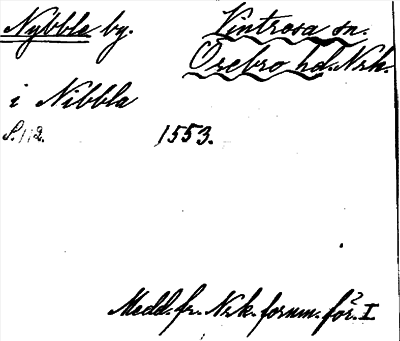 Nybble by. Vintrosa sn.
Örebro hd. Nrk.
i Nibbla
S. 112. 1553.
Medd. fr. Nrk. fornm. för. I